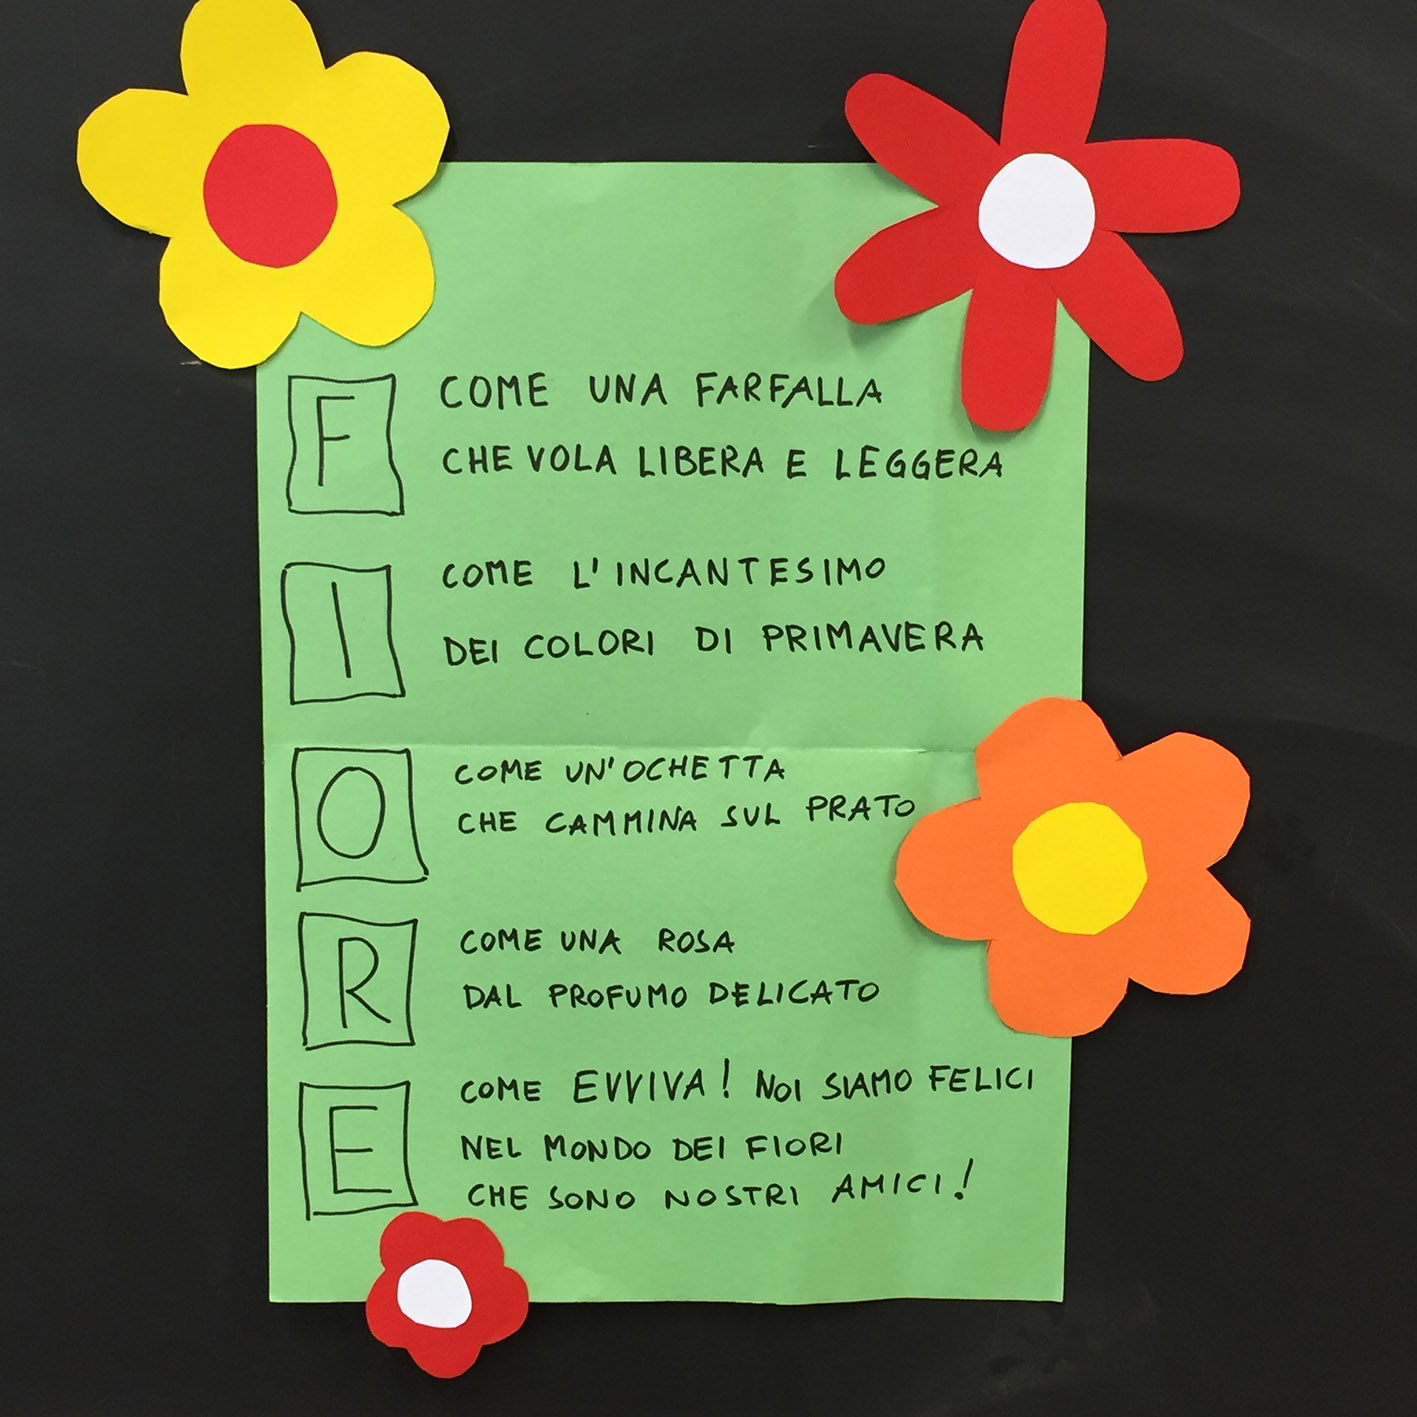 F COME UNA FARFALLA
CHE VOLA LIBERA E LEGGERA
I COME L'INCANTESIMO
DEI COLORI DI PRIMAVERA
O COME UN'OCHETTA
CHE CAMMINA SUL PRATO
R COME UNA ROSA
DAL PROFUMO DELICATO
E COME EVVIVA! NOI SIAMO FELICI
NEL MONDO DEI FIORI
CHE SONO NOSTRI AMICI!